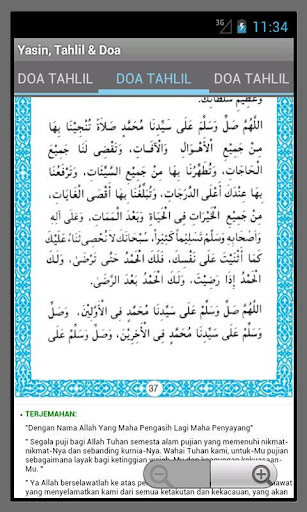 3G 11:34
Yasin, Tahlil & Doa
DOA TAHLIL DOA TAHLIL DOA TAHLIL
وَعَظِيْمِ سُلْطَانِكَ.
اَللّٰهُمَّ صَلِّ وَسَلِّمْ عَلَى سَيِّدِنَا مُحَمَّدٍ صَلَاةً تُنْجِيْنَا بِهَا
مِنْ جَمِيْعِ الْأَهْوَالِ وَالْآفَاتِ، وَتَقْضِى لَنَا جَمِيْعَ
الْحَاجَاتِ، وَتُطَهِّرُنَا بِهَا مِنْ جَمِيْعِ السَّيِّئَاتِ، وَتَرْفَعُنَا
بِهَا عِنْدَكَ أَعْلَى الدَّرَجَاتِ، وَتُبَلِّغُنَا بِهَا أَقْصَى الْغَايَاتِ،
مِنْ جَمِيْعِ الْخَيْرَاتِ فِى الْحَيَاةِ وَبَعْدَ الْمَمَاتِ، وَعَلَى آلِهِ
وَاَصْحَابِهِ وَسَلِّمْ تَسْلِيْمًا كَثِيْرًا، سُبْحَانَكَ لَا نُحْصِى ثَنَاءً عَلَيْكَ
لَكَ الْحَمْدُ فِى كُلِّ وَقْتٍ، فَلَكَ الْحَمْدُ حَتَّى تَرْضَى، وَلَكَ
الْحَمْدُ إِذَا رَضِيْتَ، وَلَكَ الْحَمْدُ بَعْدَ الرِّضَى.
اَللّٰهُمَّ صَلِّ وَسَلِّمْ عَلَى سَيِّدِنَا مُحَمَّدٍ فِى الْأَوَّلِيْنَ، وَصَلِّ
وَسَلِّمْ عَلَى سَيِّدِنَا مُحَمَّدٍ فِى الْآخِرِيْنَ، وَصَلِّ وَسَلِّمْ عَلَى
37
• TERJEMAHAN:
"Dengan Nama Allah Yang Maha Pengasih Lagi Maha Penyayang"
" Segala puji bagi Allah Tuhan semesta alam pujian yang memenuhi nikmat-
nikmat-Nya dan sebanding kurnia-Nya. Wahai Tuhan kami, untuk-Mu pujian
sebagaimana layak bagi ketinggian wajah-Mu dan
Mu. "
" Ya Allah berselawatlah ke atas
menyelamatkan kami dari semua ketakutan dan kekacauan, yang akan